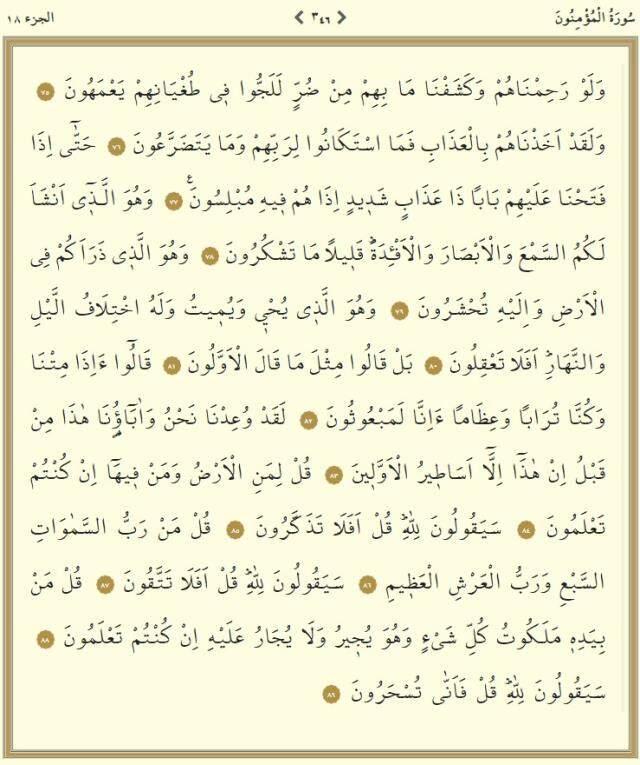 سُورَةُ الْمُؤْمِنُونَ ٣٤٦ الجزء ١٨
وَلَوْ رَحِمْنَاهُمْ وَكَشَفْنَا مَا بِهِمْ مِنْ ضُرٍّ لَلَجُّوا ف۪ي طُغْيَانِهِمْ يَعْمَهُونَ ٧٥
وَلَقَدْ اَخَذْنَاهُمْ بِالْعَذَابِ فَمَا اسْتَكَانُوا لِرَبِّهِمْ وَمَا يَتَضَرَّعُونَ ٧٦ حَتّٰٓى اِذَا
فَتَحْنَا عَلَيْهِمْ بَابًا ذَا عَذَابٍ شَد۪يدٍ اِذَا هُمْ ف۪يهِ مُبْلِسُونَ۟ ٧٧ وَهُوَ الَّذ۪ٓي اَنْشَاَ
لَكُمُ السَّمْعَ وَالْاَبْصَارَ وَالْاَفْـِٔدَةَۜ قَل۪يلًا مَا تَشْكُرُونَ ٧٨ وَهُوَ الَّذ۪ي ذَرَاَكُمْ فِي
الْاَرْضِ وَاِلَيْهِ تُحْشَرُونَ ٧٩ وَهُوَ الَّذ۪ي يُحْي۪ وَيُم۪يتُ وَلَهُ اخْتِلَافُ الَّيْلِ
وَالنَّهَارِۜ اَفَلَا تَعْقِلُونَ ٨٠ بَلْ قَالُوا مِثْلَ مَا قَالَ الْاَوَّلُونَ ٨١ قَالُٓوا ءَاِذَا مِتْنَا
وَكُنَّا تُرَابًا وَعِظَامًا ءَاِنَّا لَمَبْعُوثُونَ ٨٢ لَقَدْ وُعِدْنَا نَحْنُ وَاٰبَٓاؤُ۬نَا هٰذَا مِنْ
قَبْلُ اِنْ هٰذَٓا اِلَّٓا اَسَاط۪يرُ الْاَوَّل۪ينَ ٨٣ قُلْ لِمَنِ الْاَرْضُ وَمَنْ ف۪يهَٓا اِنْ كُنْتُمْ
تَعْلَمُونَ ٨٤ سَيَقُولُونَ لِلّٰهِۜ قُلْ اَفَلَا تَذَكَّرُونَ ٨٥ قُلْ مَنْ رَبُّ السَّمٰوَاتِ
السَّبْعِ وَرَبُّ الْعَرْشِ الْعَظ۪يمِ ٨٦ سَيَقُولُونَ لِلّٰهِۜ قُلْ اَفَلَا تَتَّقُونَ ٨٧ قُلْ مَنْ
بِيَدِه۪ مَلَكُوتُ كُلِّ شَيْءٍ وَهُوَ يُج۪يرُ وَلَا يُجَارُ عَلَيْهِ اِنْ كُنْتُمْ تَعْلَمُونَ ٨٨
سَيَقُولُونَ لِلّٰهِۜ قُلْ فَاَنّٰى تُسْحَرُونَ ٨٩